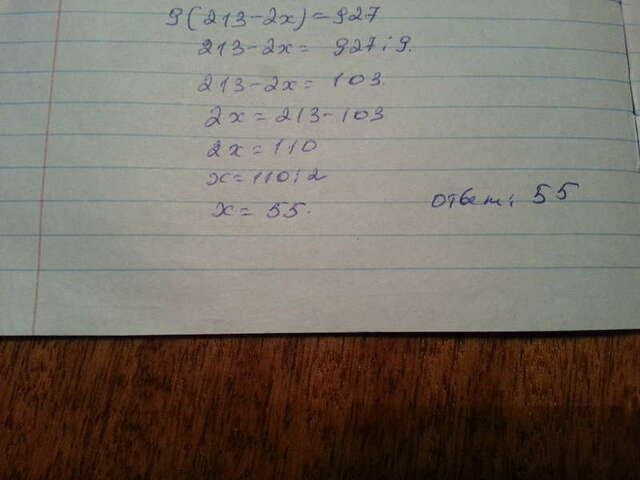 9(213-2x)=927
213-2x= 927:9.
213-2x= 103.
2x=213-103
2x=110
x=110:2
x=55. ответ: 55